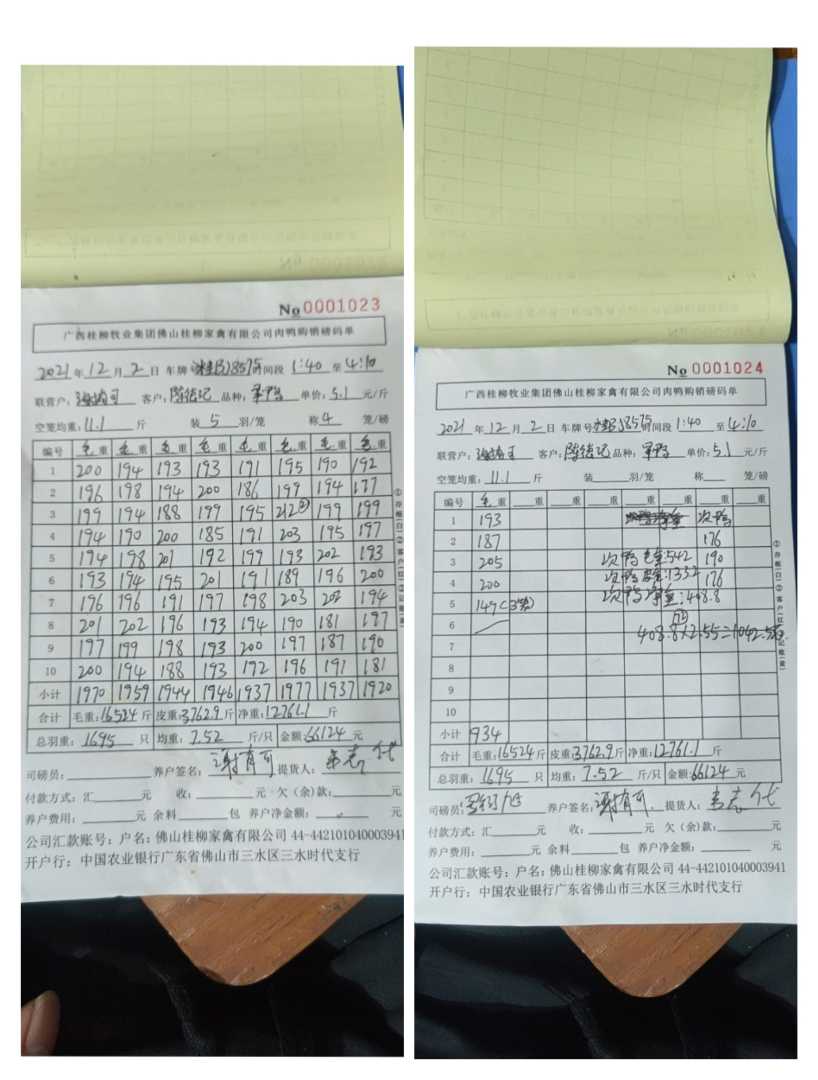 No 0001023
广西桂柳牧业集团佛山桂柳家禽有限公司肉鸭购销磅码单
2021年12月2日 车牌 8575 时间段 1:40 至 4:10
联营户: 谢有可 客户: 陈德记 品种: 单价: 5.1 元/斤
空笼均重: 11.1 斤 装 5 羽/笼 称 4 笼/磅
编号 毛重 毛重 毛重 毛重 毛重 毛重 毛重 毛重
1 200 194 193 193 191 195 190 192
2 196 198 194 200 186 199 194 177
3 199 194 188 199 195 212 199 199
4 194 190 200 185 191 203 195 197
5 194 198 201 192 199 193 202 193
6 193 194 195 201 191 189 196 200
7 196 196 191 197 198 203 202 194
8 201 202 196 193 194 190 181 197
9 197 199 198 193 200 197 187 190
10 200 194 188 193 192 196 191 181
小计 1970 1959 1944 1946 1937 1977 1937 1920
合计 毛重: 16524 斤 皮重: 3762.9 斤 净重: 12761.1 斤
总羽重: 1695 只 均重: 7.52 斤/只 金额: 66124 元
司磅员: 养户签名: 谢有可 提货人:
付款方式: 汇 元 收: 元 欠(余)款: 元
养户费用: 元 余料 包 养户净金额: 元
公司汇款账号: 户名: 佛山桂柳家禽有限公司 44-442101040003941
开户行: 中国农业银行广东省佛山市三水区三水时代支行
No 0001024
广西桂柳牧业集团佛山桂柳家禽有限公司肉鸭购销磅码单
2021年12月2日 车牌号 8575 时间段 1:40 至 4:10
联营户: 谢有可 客户: 陈德记 品种: 单价: 5.1 元/斤
空笼均重: 11.1 斤 装 羽/笼 称 笼/磅
编号 毛重 重 重 重 重 重 重 重
1 193 次鸭
2 187 176
3 205 次鸭毛重:542 190
4 200 次鸭皮重:133.2 176
5 149(3笼) 次鸭净重:408.8
6
408.8×2.55=1042.5元
7
8
9
10
小计 934
合计 毛重: 16524 斤 皮重: 3762.9 斤 净重: 12761.1 斤
总羽重: 1695 只 均重: 7.52 斤/只 金额: 66124 元
司磅员: 养户签名: 谢有可 提货人:
付款方式: 汇 元 收: 元 欠(余)款: 元
养户费用: 元 余料 包 养户净金额: 元
公司汇款账号: 户名: 佛山桂柳家禽有限公司 44-442101040003941
开户行: 中国农业银行广东省佛山市三水区三水时代支行